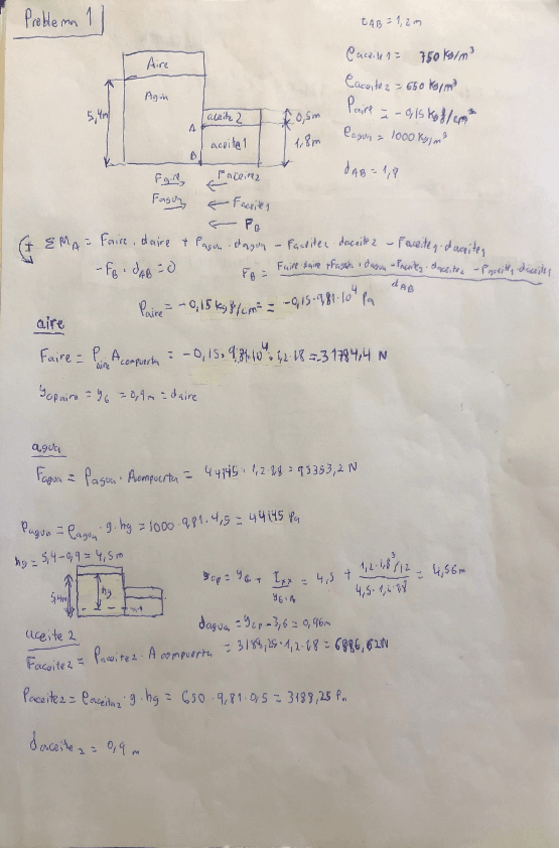 Problema 1
tAB = 1,2 m
ρaceite1 = 750 Kg/m³
ρaceite2 = 650 Kg/m³
Paire = -0,15 Kgf/cm²
ρagua = 1000 Kg/m³
dAB = 1,8
Aire
Agua
5,4m
aceite 2
0,5m
A
aceite 1
1,8m
B
Faire
Faceite2
Fagua
Faceite1
FB
+ ΣMA = Faire · daire + Fagua · dagua - Faceite2 · daceite2 - Faceite1 · daceite1
- FB · dAB = 0
FB = Faire·daire + Fagua · dagua - Faceite2 · daceite2 - Faceite1 · daceite1 / dAB
Paire = -0,15 Kgf/cm² = -0,15·9,81·10⁴ Pa
aire
Faire = Paire Acompuerta = -0,15 · 9,81·10⁴ · 1,2 · 1,8 = 31784,4 N
ycpaire = yG = 0,9m = daire
agua
Fagua = Pagua · Acompuerta = 44145 · 1,2 · 1,8 = 95353,2 N
Pagua = ρagua · g · hg = 1000 · 9,81 · 4,5 = 44145 Pa
hg = 5,4 - 0,9 = 4,5m
5,4m
hg
ycp = yG + Ixx / yG·A = 4,5 + 1,2·1,8³/12 / 4,5·1,2·1,8 = 4,56m
dagua = ycp - 3,6 = 0,96m
aceite 2
Faceite2 = Paceite2 · Acompuerta = 3188,25 · 1,2 · 1,8 = 6886,62N
Paceite2 = ρaceite2 · g · hg = 650 · 9,81 · 0,5 = 3188,25 Pa
daceite2 = 0,9 m